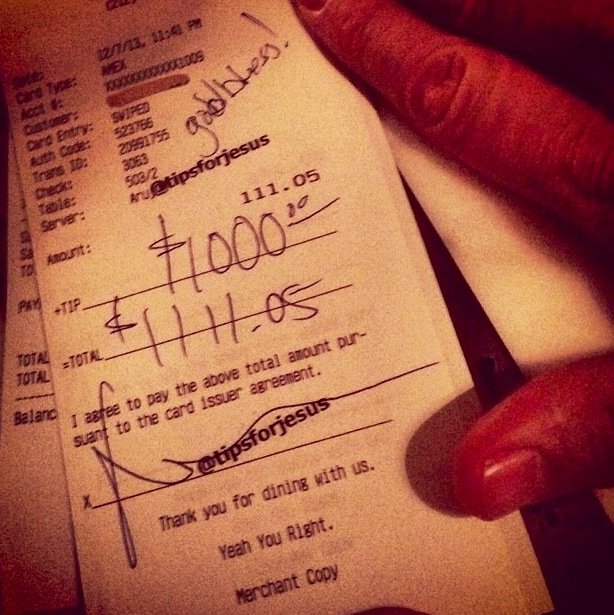 Date: 12/7/13, 11:41 PM
Card Type: AMEX
Acct #: XXXXXXXXXXX1009
Customer:
Card Entry: SWIPED
Auth Code: 523766
Trans ID: 20991755
Check: 3063
Table: 503/2
Server:
god bless!
@tipsforjesus
Amount: 111.05
+TIP $1000.00
=TOTAL $1111.05
I agree to pay the above total amount pur-
suant to the card issuer agreement.
X
@tipsforjesus
Thank you for dining with us.
Yeah You Right.
Merchant Copy
PAY
TOTAL
TOTAL
Balanc